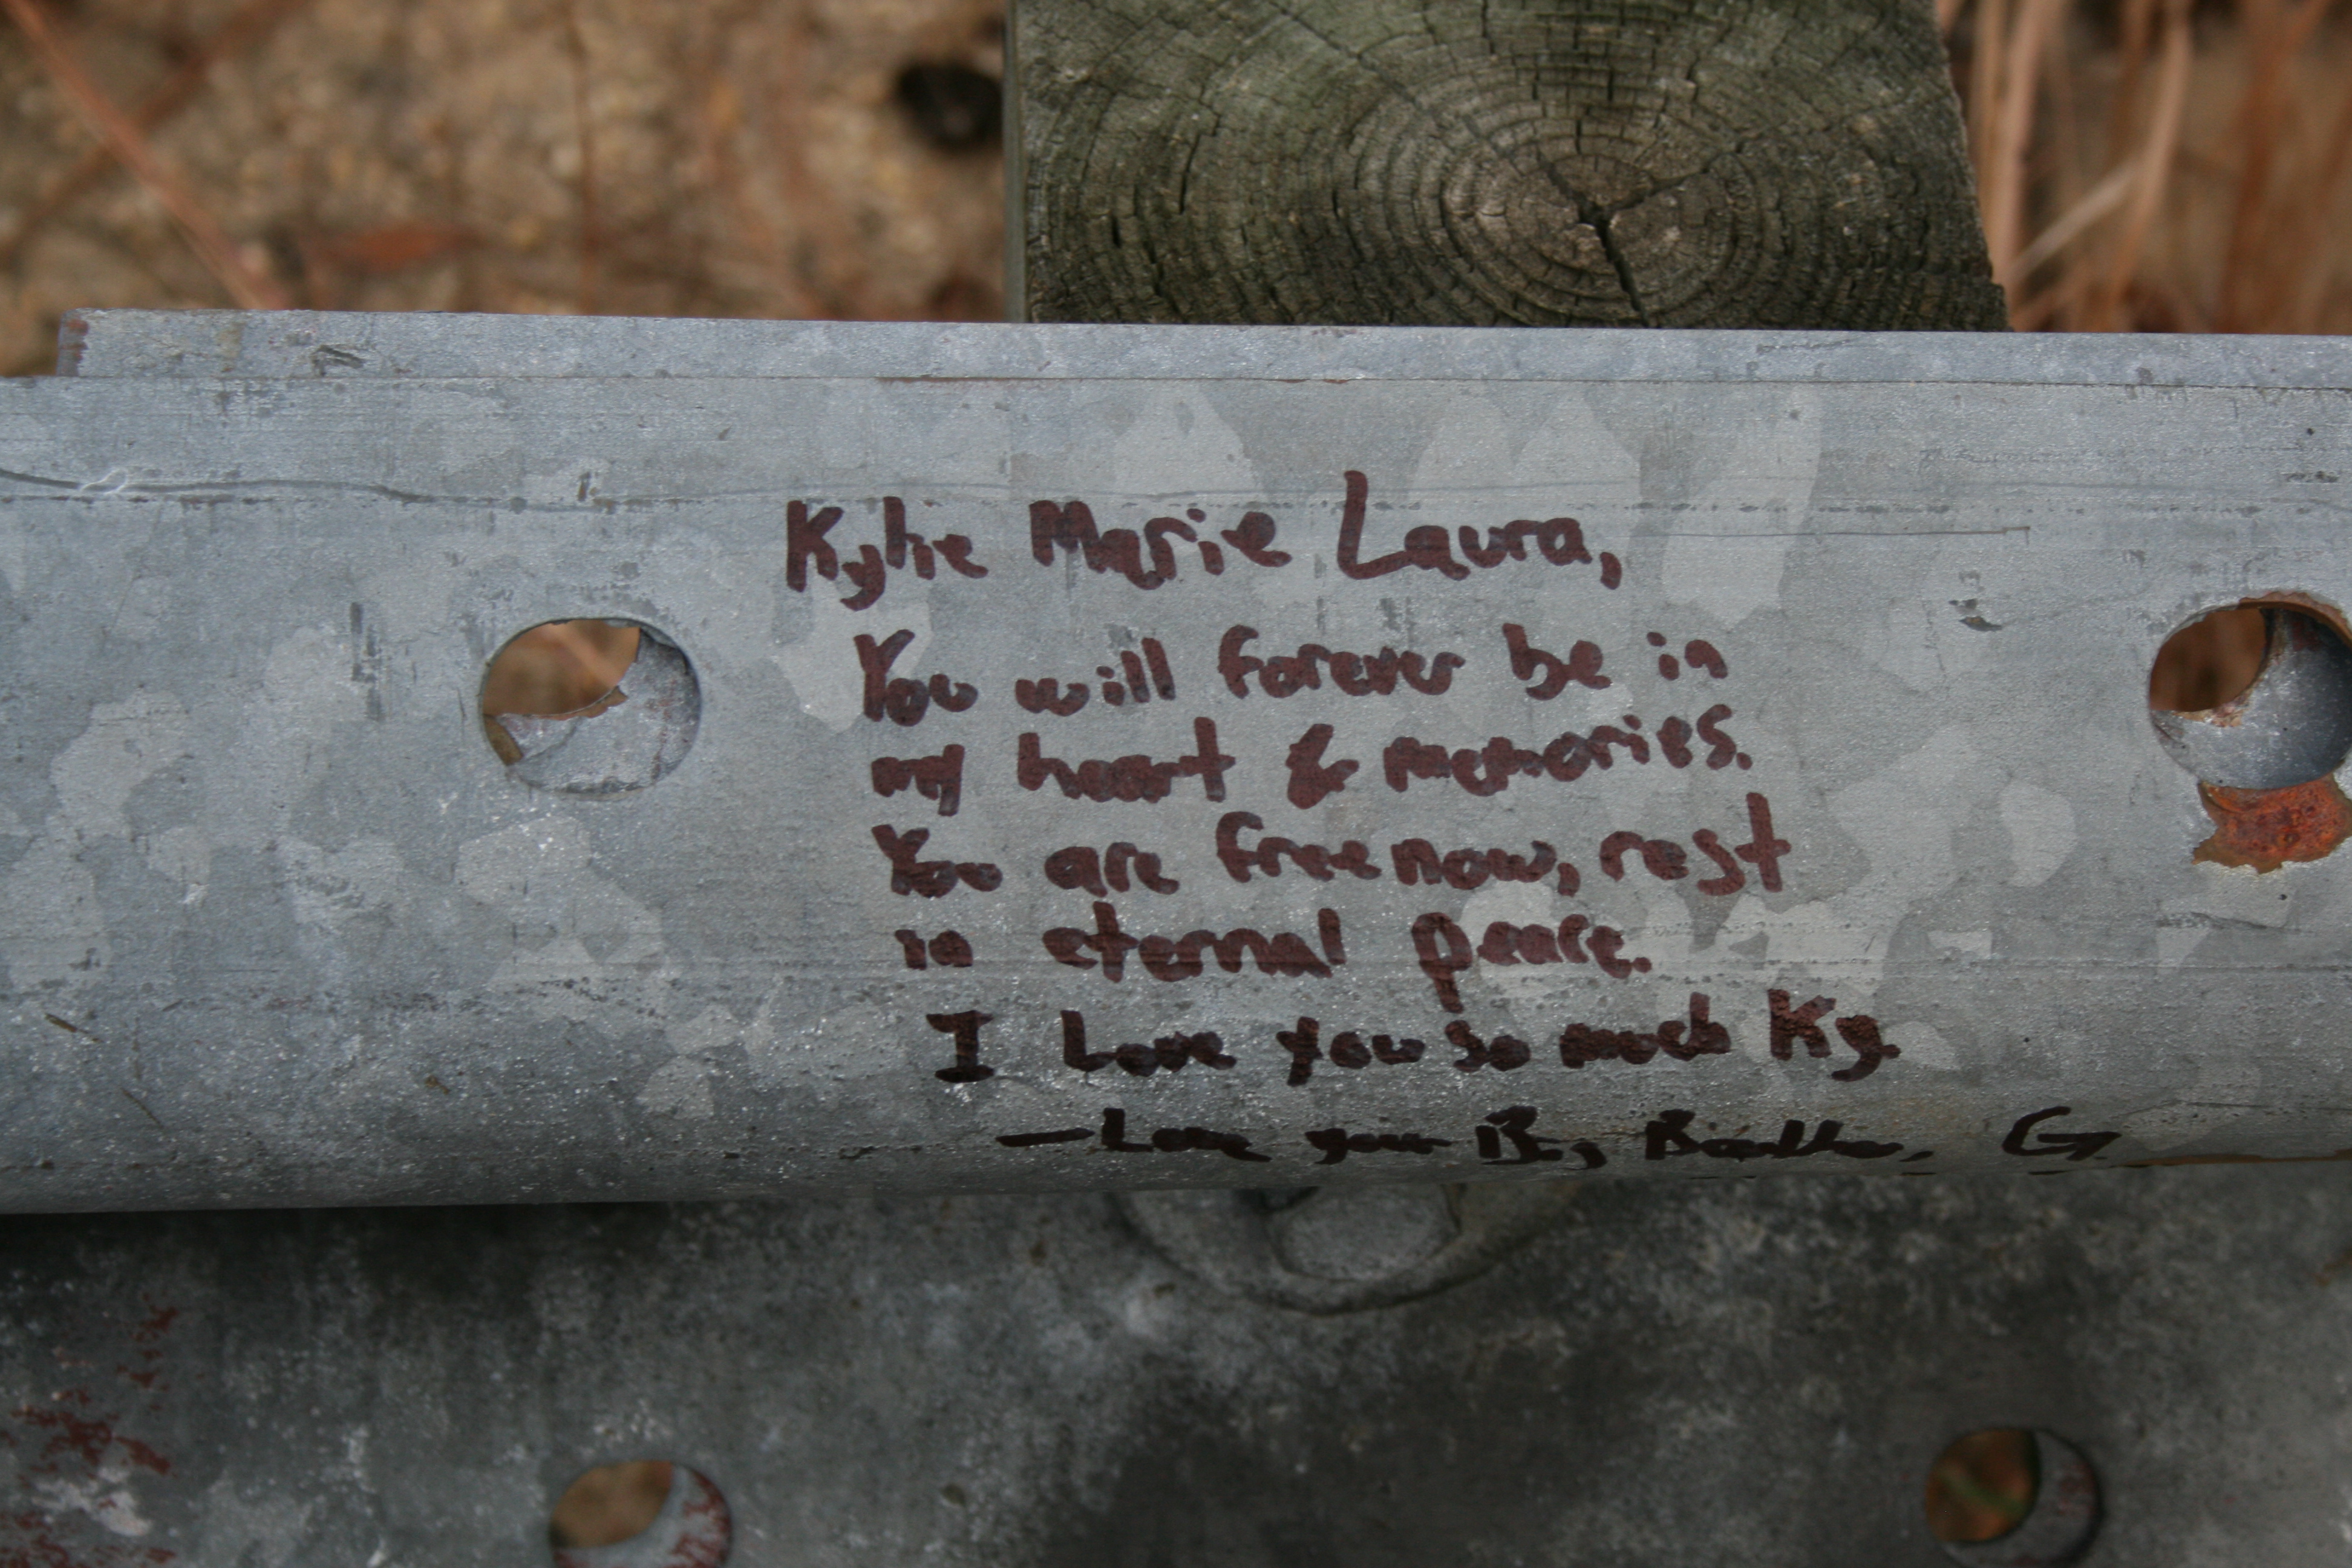 Kylie Marie Laura,
You will forever be in
my heart & memories.
You are free now, rest
in eternal peace.
I Love you so much Ky.
— Love your Big Brother, G